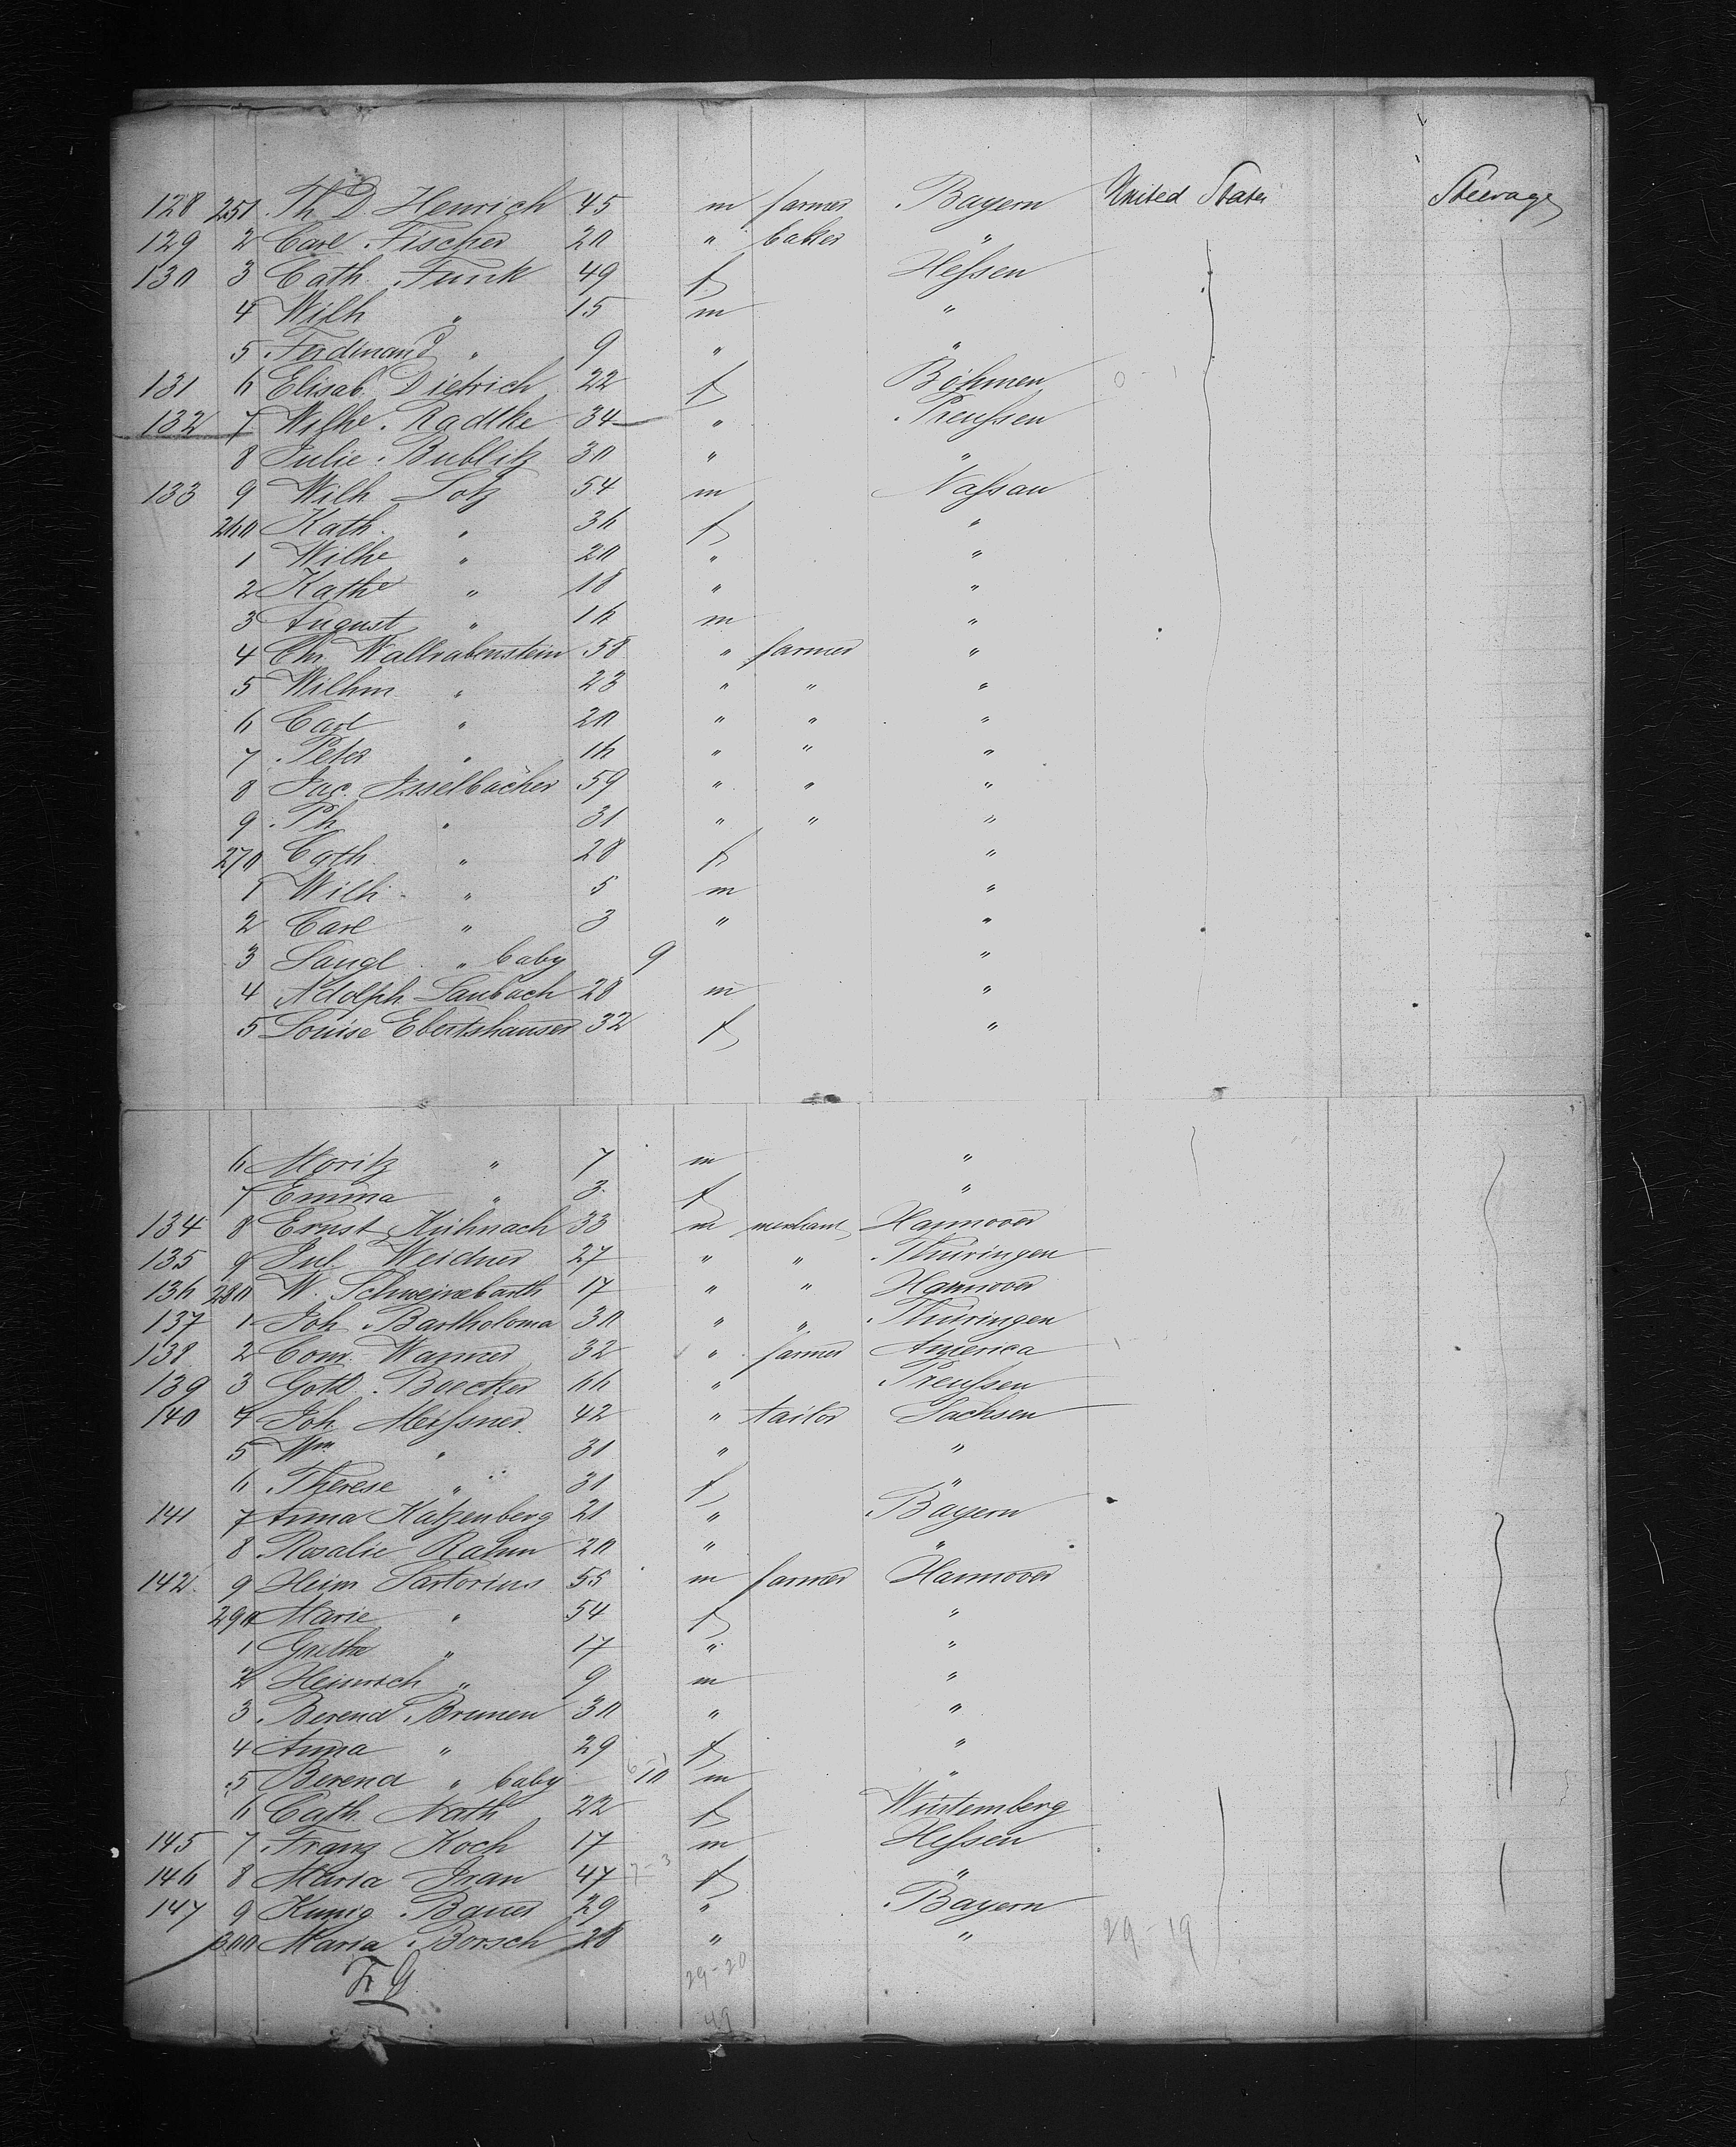 128 251 Th. D. Henrich 45 m farmer Bayern United States Steerage
129 2 Carl Fischer 20 " baker "
130 3 Cath. Funk 49 f Hessen
4 Wilh " 15 m "
5 Ferdinand " 9 " "
131 6 Elisab. Dietrich 22 f Böhmen
132 7 Wilhe. Radtke 34 " Preussen
8 Julie Bublitz 30 " "
133 9 Wilh Lotz 54 m Nassau
260 Kath. " 36 f "
1 Wilhe " 20 " "
2 Kathe " 18 " "
3 August " 16 m "
4 Chr. Wallrabenstein 58 " farmer "
5 Wilhm. " 23 " " "
6 Carl " 20 " " "
7 Peter " 16 " " "
8 Jac. Isselbächer 59 " " "
9 Ph. " 31 " " "
270 Cath. " 28 f "
1 Wilh. " 5 m "
2 Carl " 3 " "
3 Saugl. " baby 9 "
4 Adolph Laubach 28 m "
5 Louise Ebertshauser 32 f "
6 Moritz " 7 m "
7 Emma " 3 f "
134 8 Ernst Kühnach 33 m merchant Hannover
135 9 Jul. Weidner 27 " " Thüringen
136 280 W. Schweinebarth 17 " " Hannover
137 1 Joh. Bartholoma 30 " " Thüringen
138 2 Conr. Wanner 32 " farmer America
139 3 Gottl. Boecker 66 " Preussen
140 4 Joh. Meissner 42 " tailor Sachsen
5 Wm " 31 " "
6 Therese " 31 f "
141 7 Anna Katzenberg 21 " Bayern
8 Rosalie Rahm 20 " "
142 9 Heinr. Sartorius 55 m farmer Hannover
290 Marie " 54 f "
1 Grethe " 17 " "
2 Heinrich " 9 m "
3 Berend Brunen 30 " "
4 Anna " 29 f "
5 Berend " baby 10 m "
6 Cath. Nath 22 f Würtemberg
145 7 Franz Koch 17 m Hessen
146 8 Maria Iran 47 f "
147 9 Kunig. Bauer 29 " Bayern
300 Maria Borsch 28 " " 29-19
29-20
49